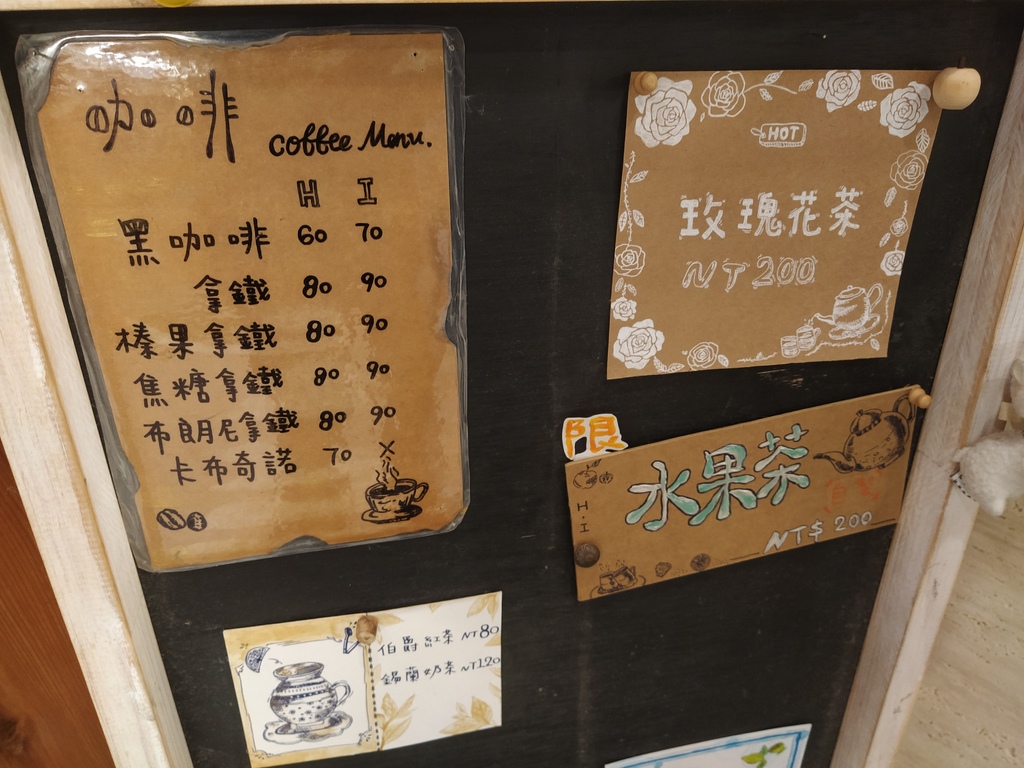 咖啡
coffee Menu.
H I
黑咖啡 60 70
拿鐵 80 90
榛果拿鐵 80 90
焦糖拿鐵 80 90
布朗尼拿鐵 80 90
卡布奇諾 70 X
HOT
玫瑰花茶
NT200
限
水果茶
H.I
NT$ 200
伯爵紅茶 NT80
錫蘭奶茶 NT120